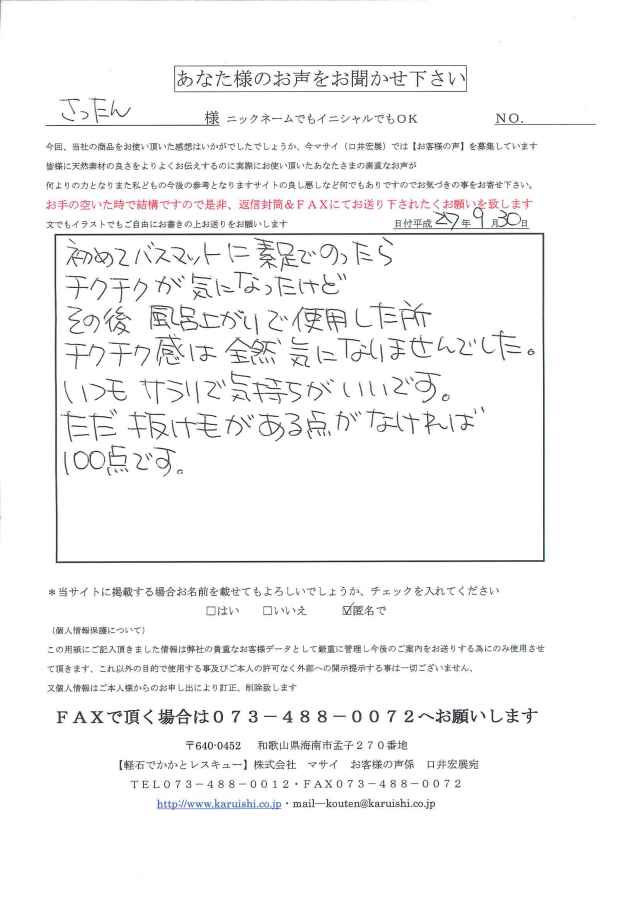 あなた様のお声をお聞かせ下さい
さったん 様 ニックネームでもイニシャルでもOK NO.
今回、当社の商品をお使い頂いた感想はいかがでしたでしょうか、今マサイ（口井宏展）では【お客様の声】を募集しています
皆様に天然素材の良さをよりよくお伝えするのに実際にお使い頂いたあなたさまの素直なお声が
何よりの力となりまた私どもの今後の参考となりますサイトの良し悪しなど何でもありですのでお気づきの事をお寄せ下さい。
お手の空いた時で結構ですので是非、返信封筒＆ＦＡＸにてお送り下されたくお願いを致します
文でもイラストでもご自由にお書きの上お送りをお願いします 日付平成27年9月30日
初めてバスマットに素足でのったら
チクチクが気になったけど
その後 風呂上がりで使用した所
チクチク感は全然気になりませんでした。
いつもサラリで気持ちがいいです。
ただ 抜け毛がある点がなければ
100点です。
＊当サイトに掲載する場合お名前を載せてもよろしいでしょうか、チェックを入れてください
□はい □いいえ ☑匿名で
（個人情報保護について）
この用紙にご記入頂きました情報は弊社の貴重なお客様データとして厳重に管理し今後のご案内をお送りする為にのみ使用させ
て頂きます、これ以外の目的で使用する事及びご本人の許可なく外部への開示提示する事は一切ございません、
又個人情報はご本人様からのお申し出により訂正、削除致します
ＦＡＸで頂く場合は０７３－４８８－００７２へお願いします
〒640-0452 和歌山県海南市孟子２７０番地
【軽石でかかとレスキュー】株式会社 マサイ お客様の声係 口井宏展宛
ＴＥＬ０７３－４８８－００１２・ＦＡＸ０７３－４８８－００７２
http://www.karuishi.co.jp・mail―kouten@karuishi.co.jp